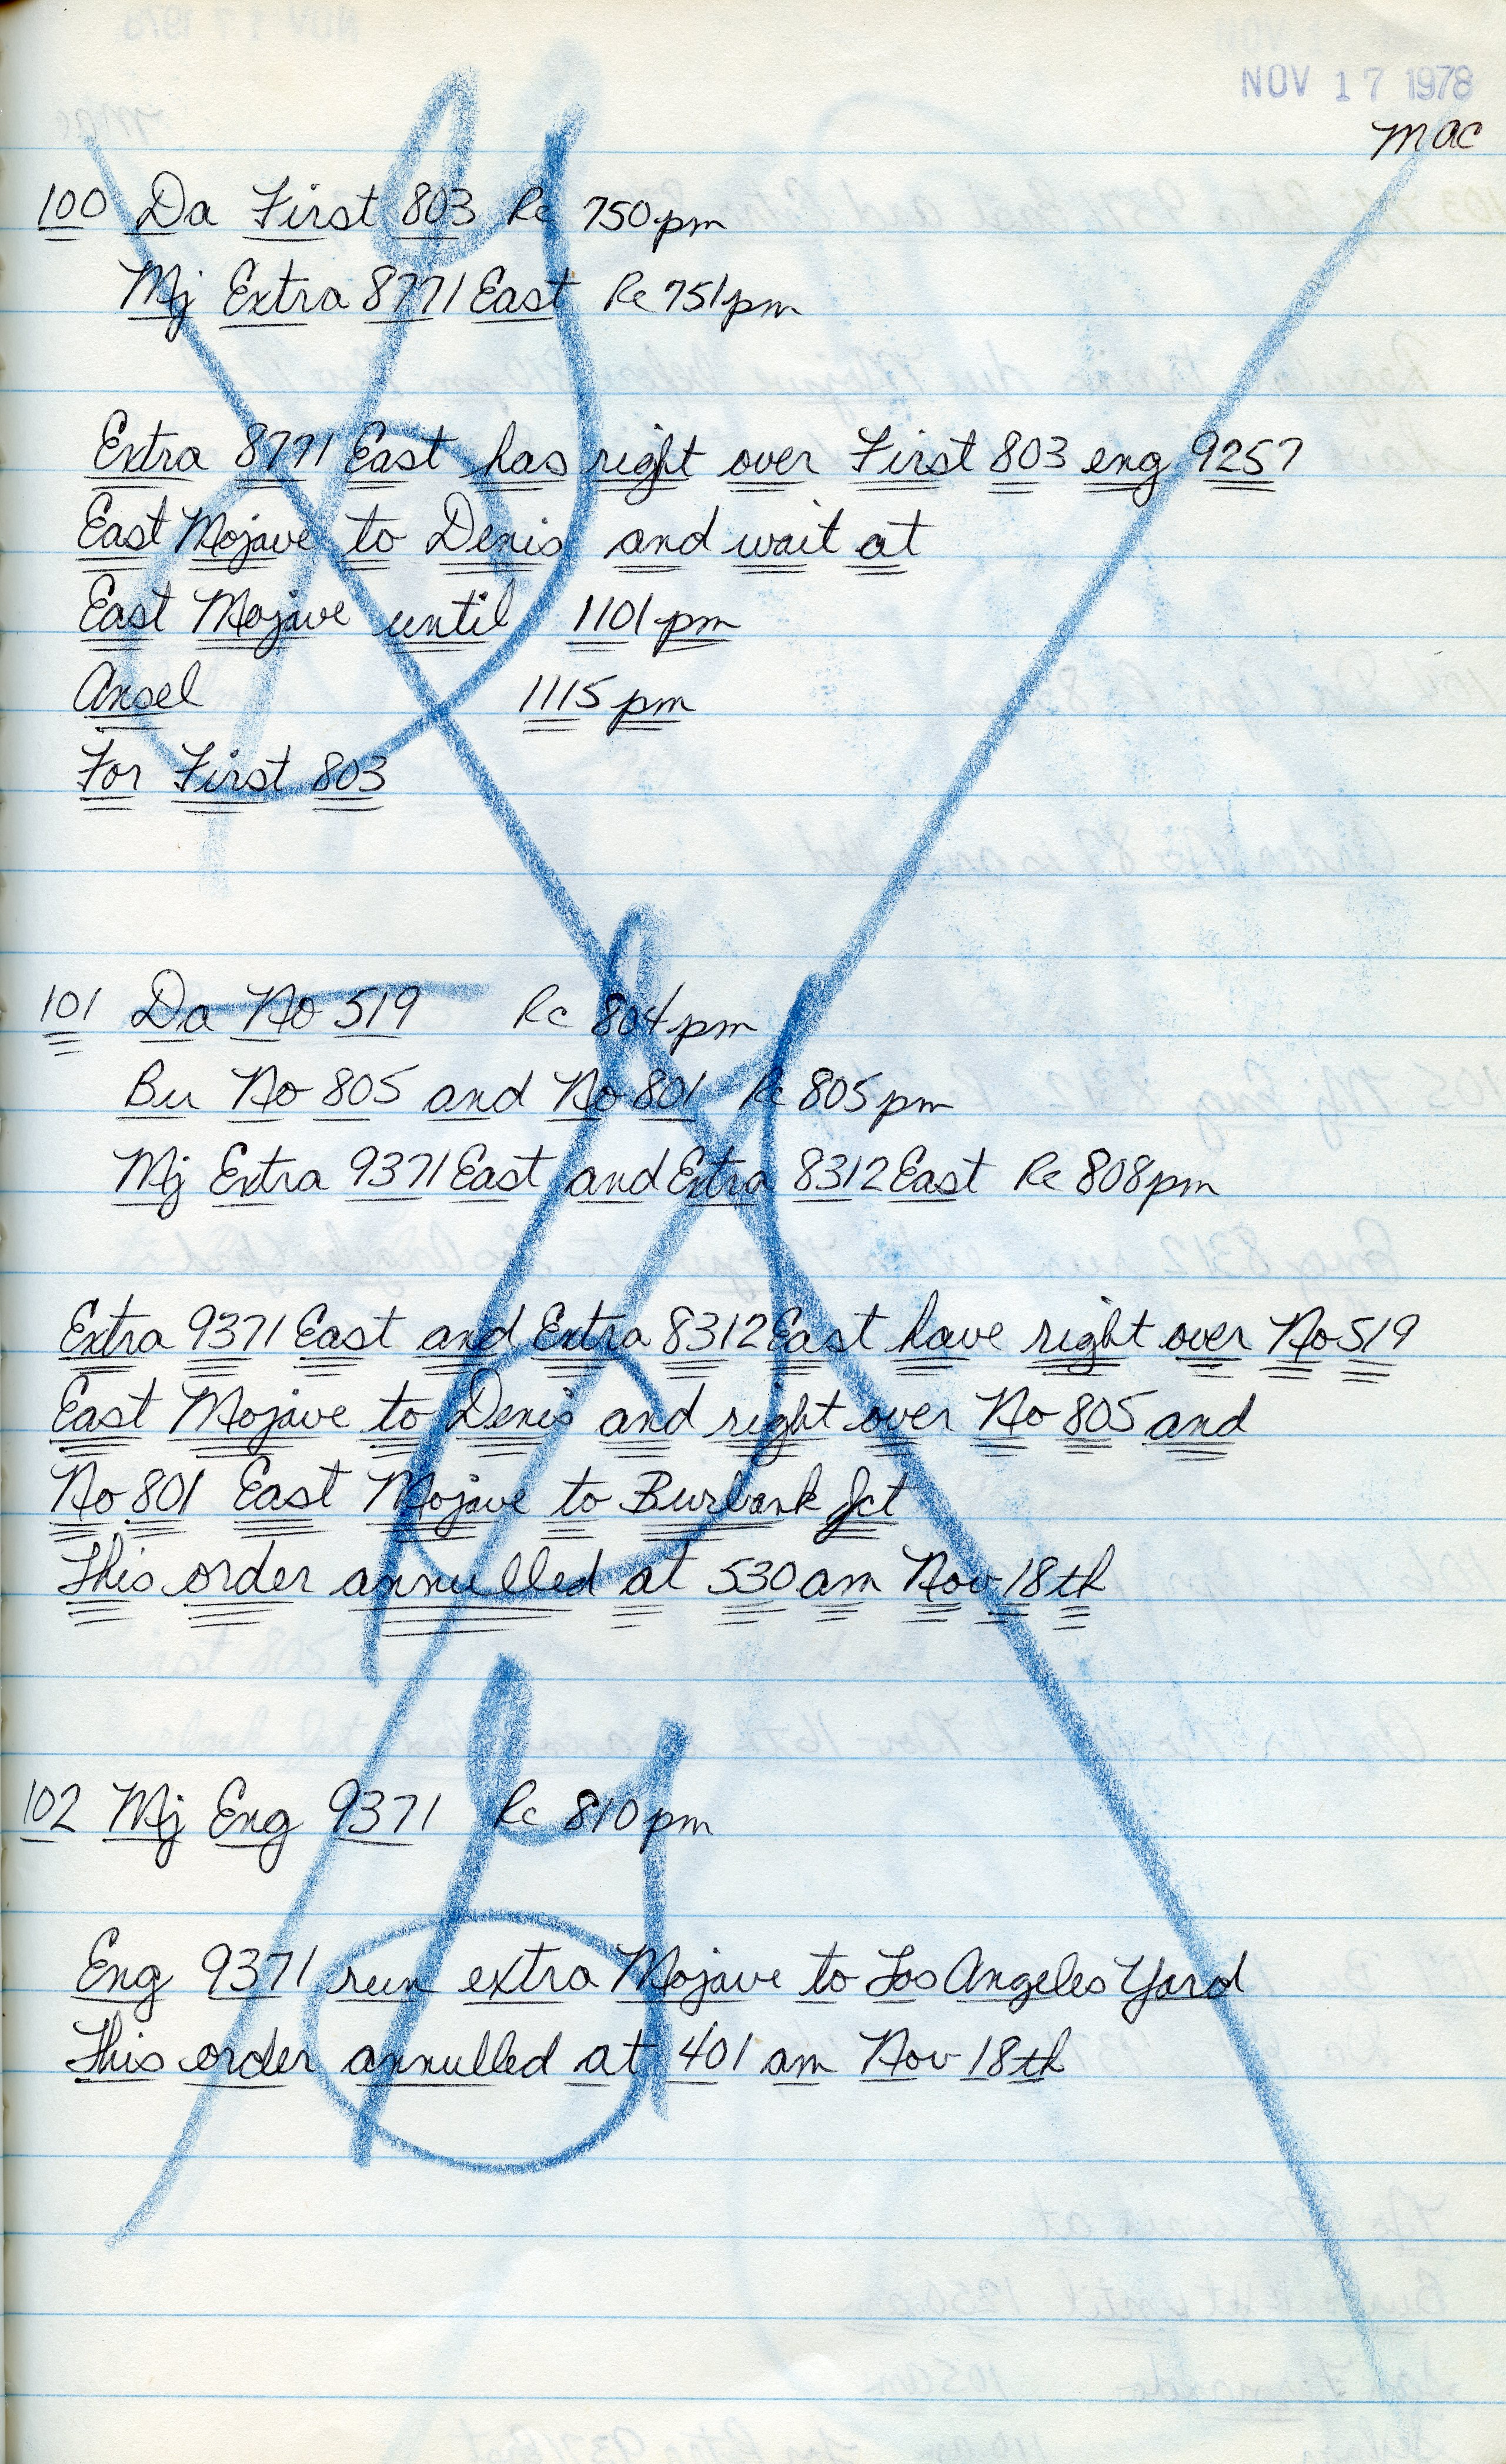 NOV 17 1978
mac
100 Da First 803 Rc 750pm
Mj Extra 8771 East Rc 751pm
Extra 8771 East has right over First 803 eng 9257
East Mojave to Denis and wait at
East Mojave until 1101pm
Ansel 1115pm
For First 803
101 Da No 519 Rc 804pm
Bu No 805 and No 801 Rc 805pm
Mj Extra 9371 East and Extra 8312 East Rc 808pm
Extra 9371 East and Extra 8312 East have right over No 519
East Mojave to Denis and right over No 805 and
No 801 East Mojave to Burbank Jct
This order annulled at 530am Nov 18th
102 Mj Eng 9371 Rc 810pm
Eng 9371 run extra Mojave to Los Angeles Yard
This order annulled at 401 am Nov 18th